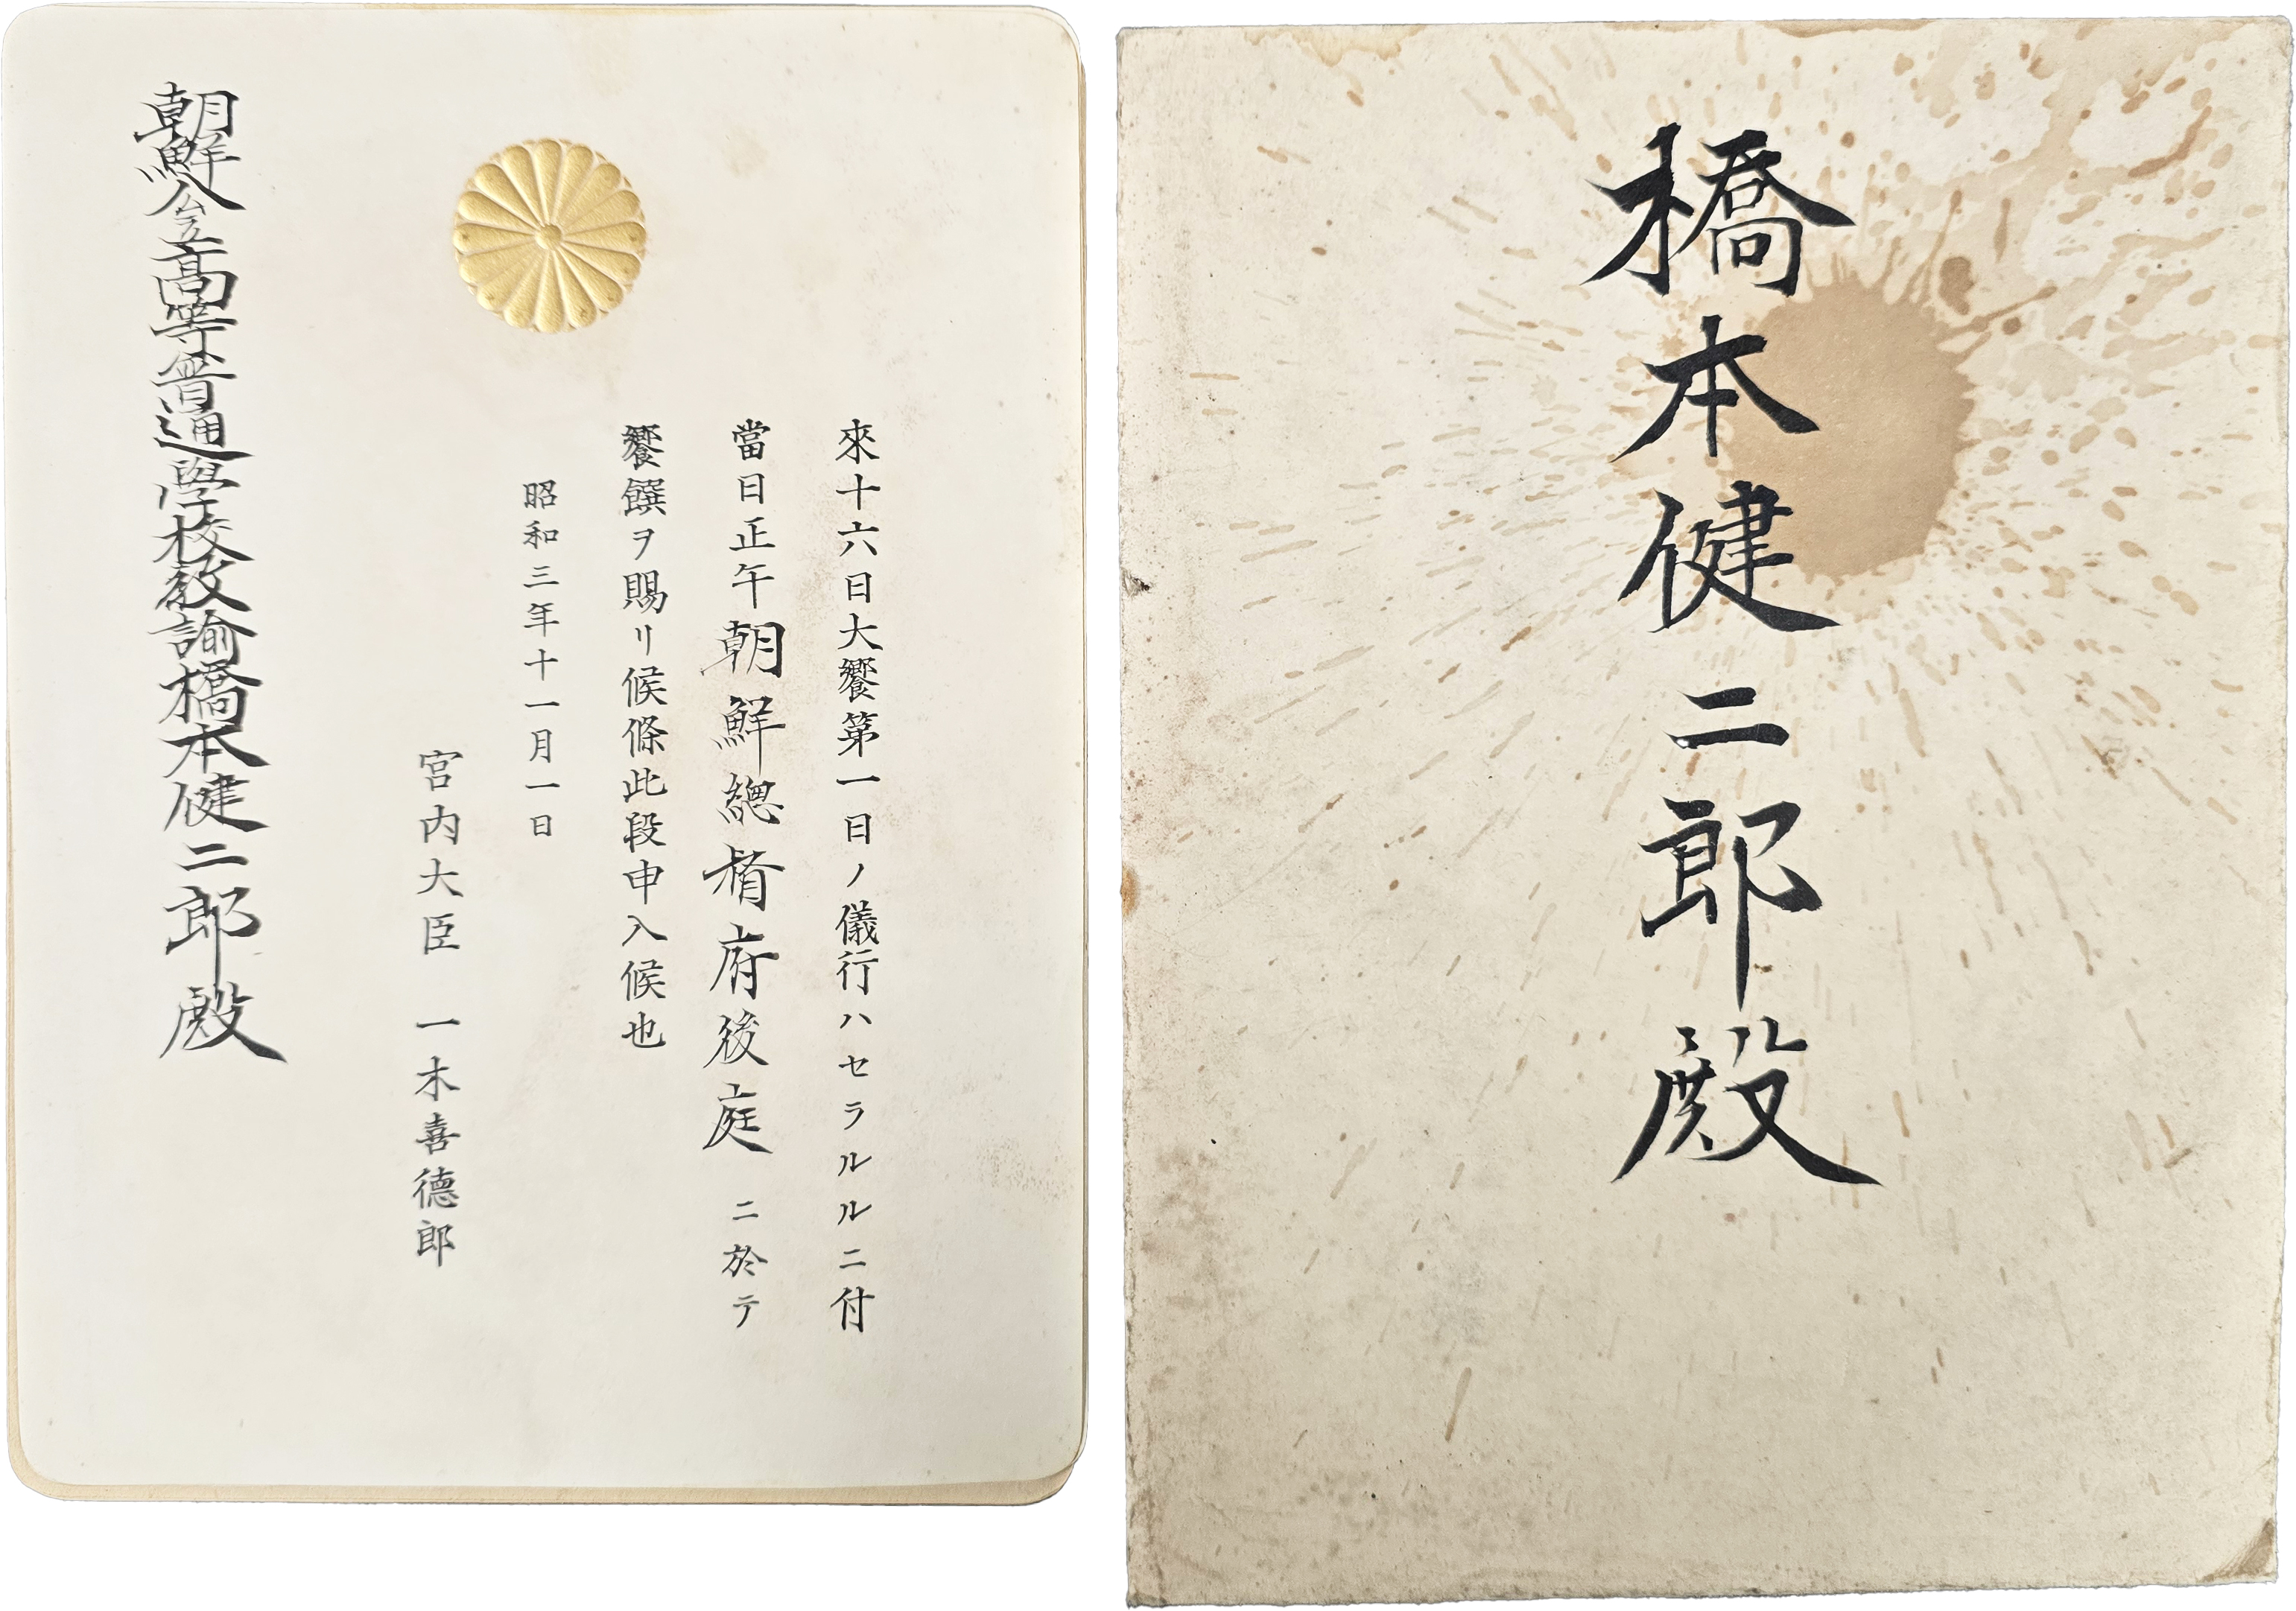 來十六日大饗第一日ノ儀行ハセラルルニ付
當日正午朝鮮總督府後庭ニ於テ
饗饌ヲ賜リ候條此段申入候也
昭和三年十一月一日
宮内大臣 一木喜德郎
朝鮮公立高等普通學校教諭橋本健二郎殿
橋本健二郎殿